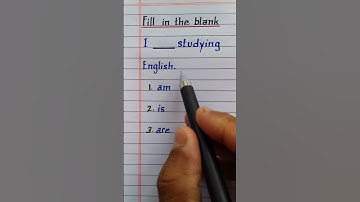 Fill in the blank
I ____ studying
English.
1. am
2. is
3. are